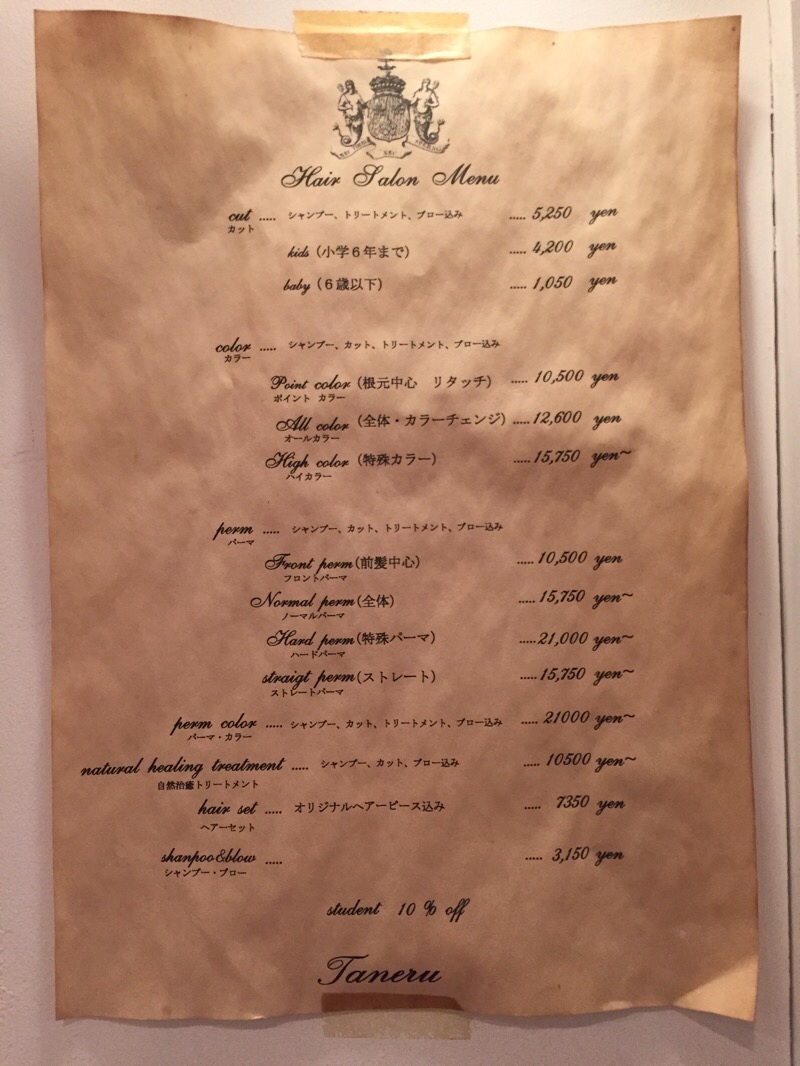 Hair Salon Menu
cut ..... シャンプー、トリートメント、ブロー込み ..... 5,250 yen
カット
kids (小学6年まで) ..... 4,200 yen
baby (6歳以下) ..... 1,050 yen
color ..... シャンプー、カット、トリートメント、ブロー込み
カラー
Point color (根元中心 リタッチ) ..... 10,500 yen
ポイント カラー
All color (全体・カラーチェンジ) ..... 12,600 yen
オールカラー
High color (特殊カラー) ..... 15,750 yen~
ハイカラー
perm ..... シャンプー、カット、トリートメント、ブロー込み
パーマ
Front perm (前髪中心) ..... 10,500 yen
フロントパーマ
Normal perm (全体) ..... 15,750 yen~
ノーマルパーマ
Hard perm (特殊パーマ) ..... 21,000 yen~
ハードパーマ
straigt perm (ストレート) ..... 15,750 yen~
ストレートパーマ
perm color ..... シャンプー、カット、トリートメント、ブロー込み ..... 21000 yen~
パーマ・カラー
natural healing treatment ..... シャンプー、カット、ブロー込み ..... 10500 yen~
自然治癒トリートメント
hair set ..... オリジナルヘアーピース込み ..... 7350 yen
ヘアーセット
shanpoo&blow ..... ..... 3,150 yen
シャンプー・ブロー
student 10 % off
Taneru